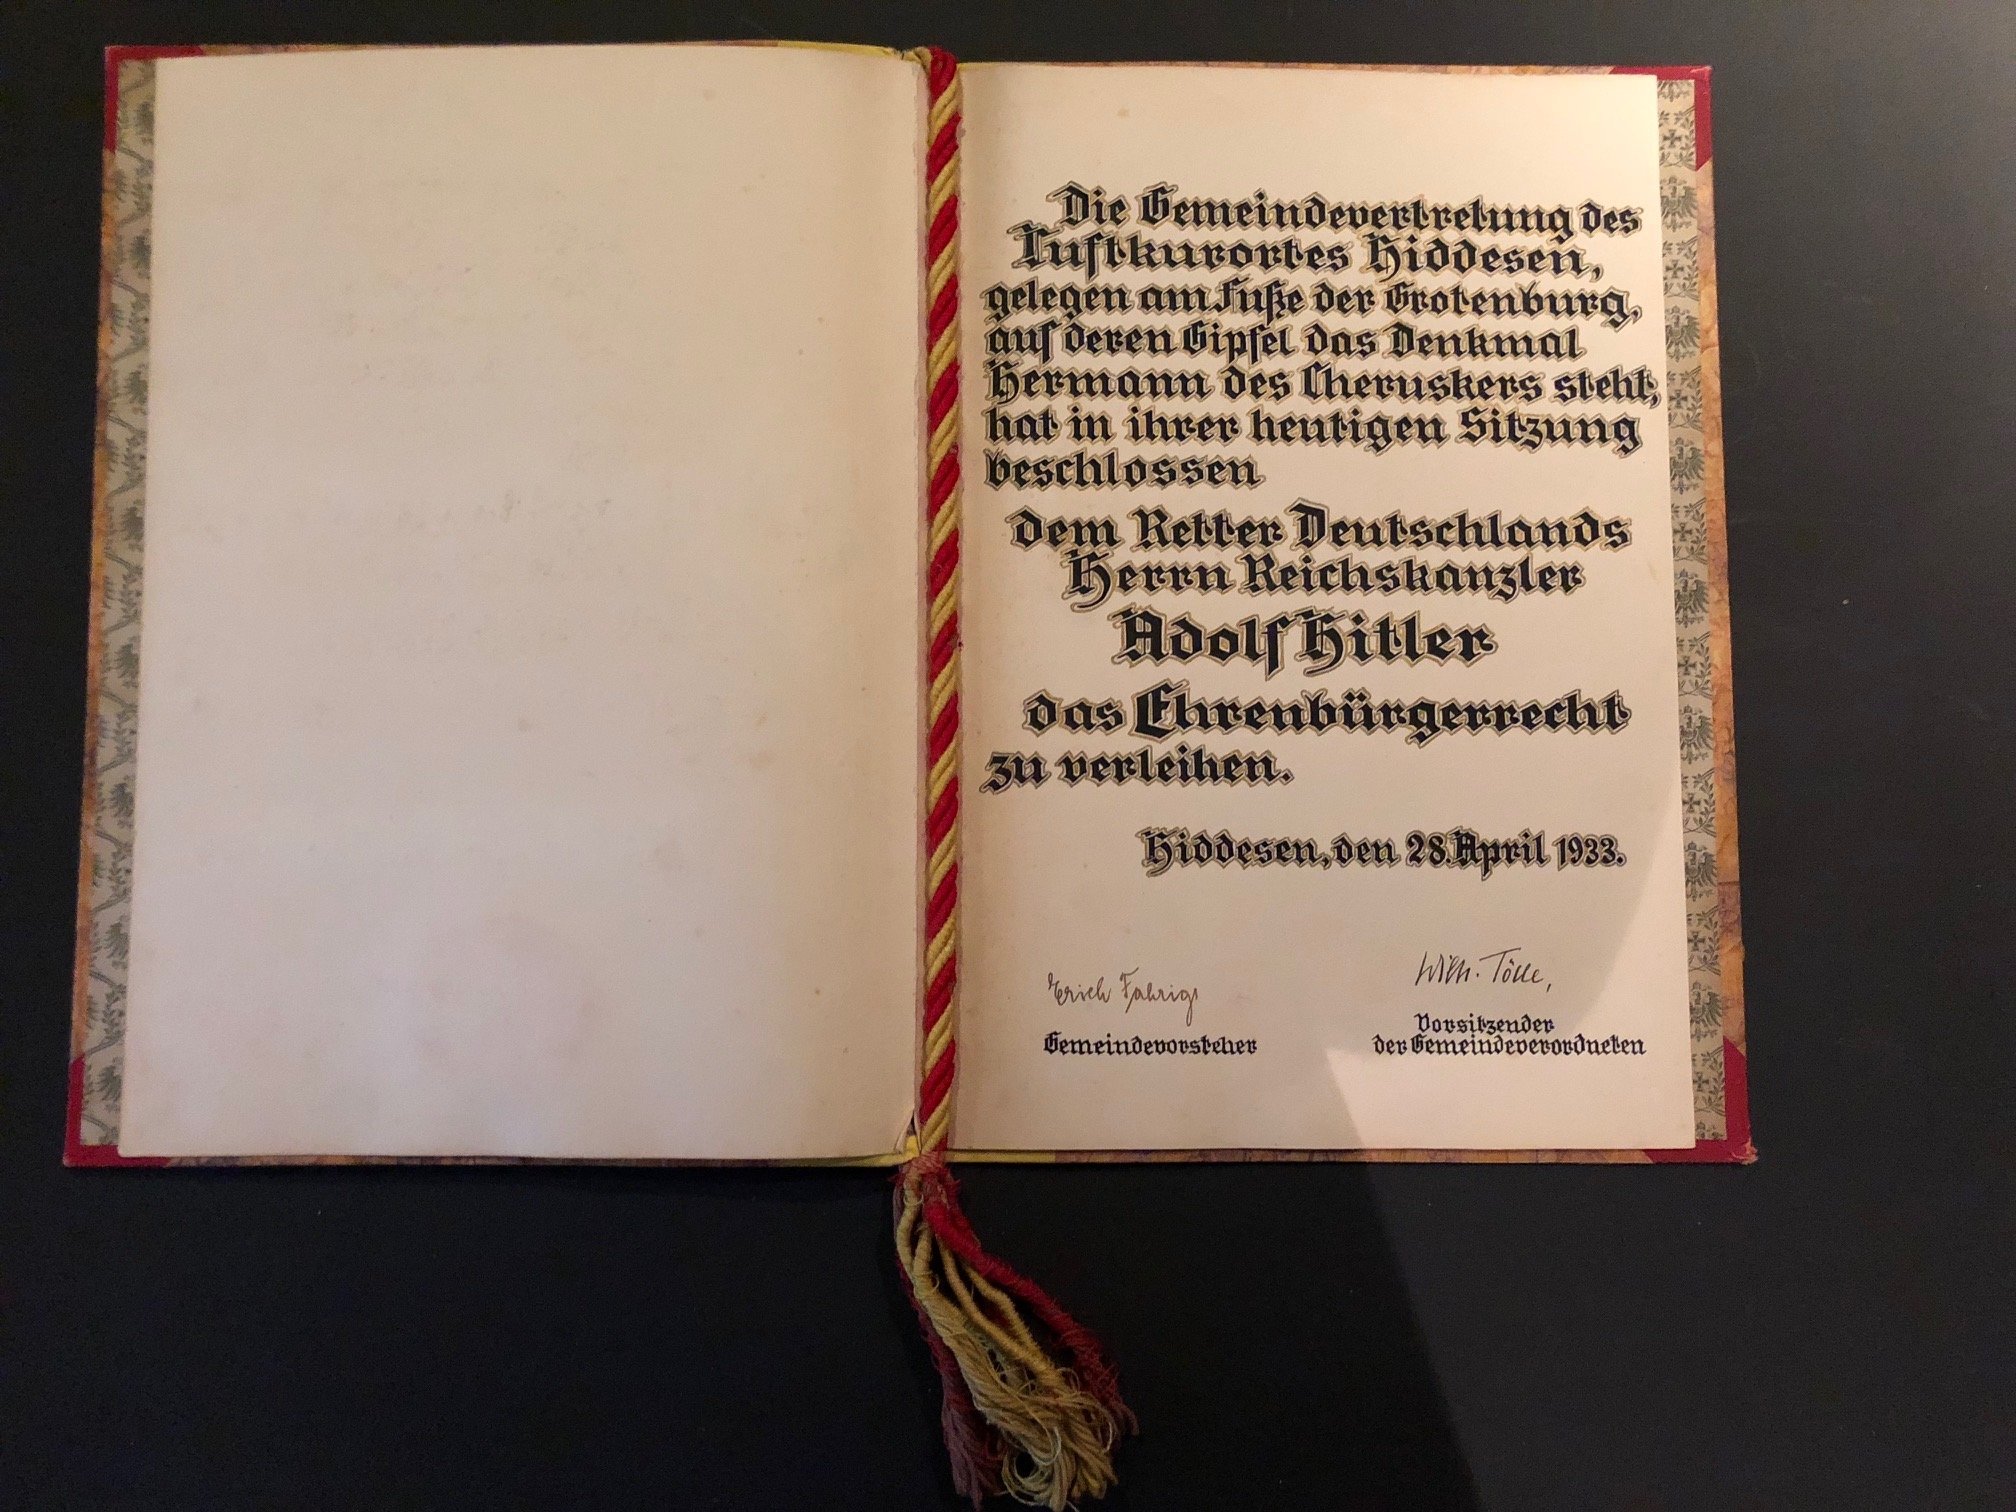 Die Gemeindevertretung des
Luftkurortes Hiddesen,
gelegen am Fuße der Grotenburg,
auf deren Gipfel das Denkmal
Hermann des Cheruskers steht,
hat in ihrer heutigen Sitzung
beschlossen
dem Retter Deutschlands
Herrn Reichskanzler
Adolf Hitler
das Ehrenbürgerrecht
zu verleihen.
Hiddesen, den 28. April 1933.
Erich Fahrig
Gemeindevorsteher
Wilh. Tölle,
Vorsitzender
der Gemeindeverordneten